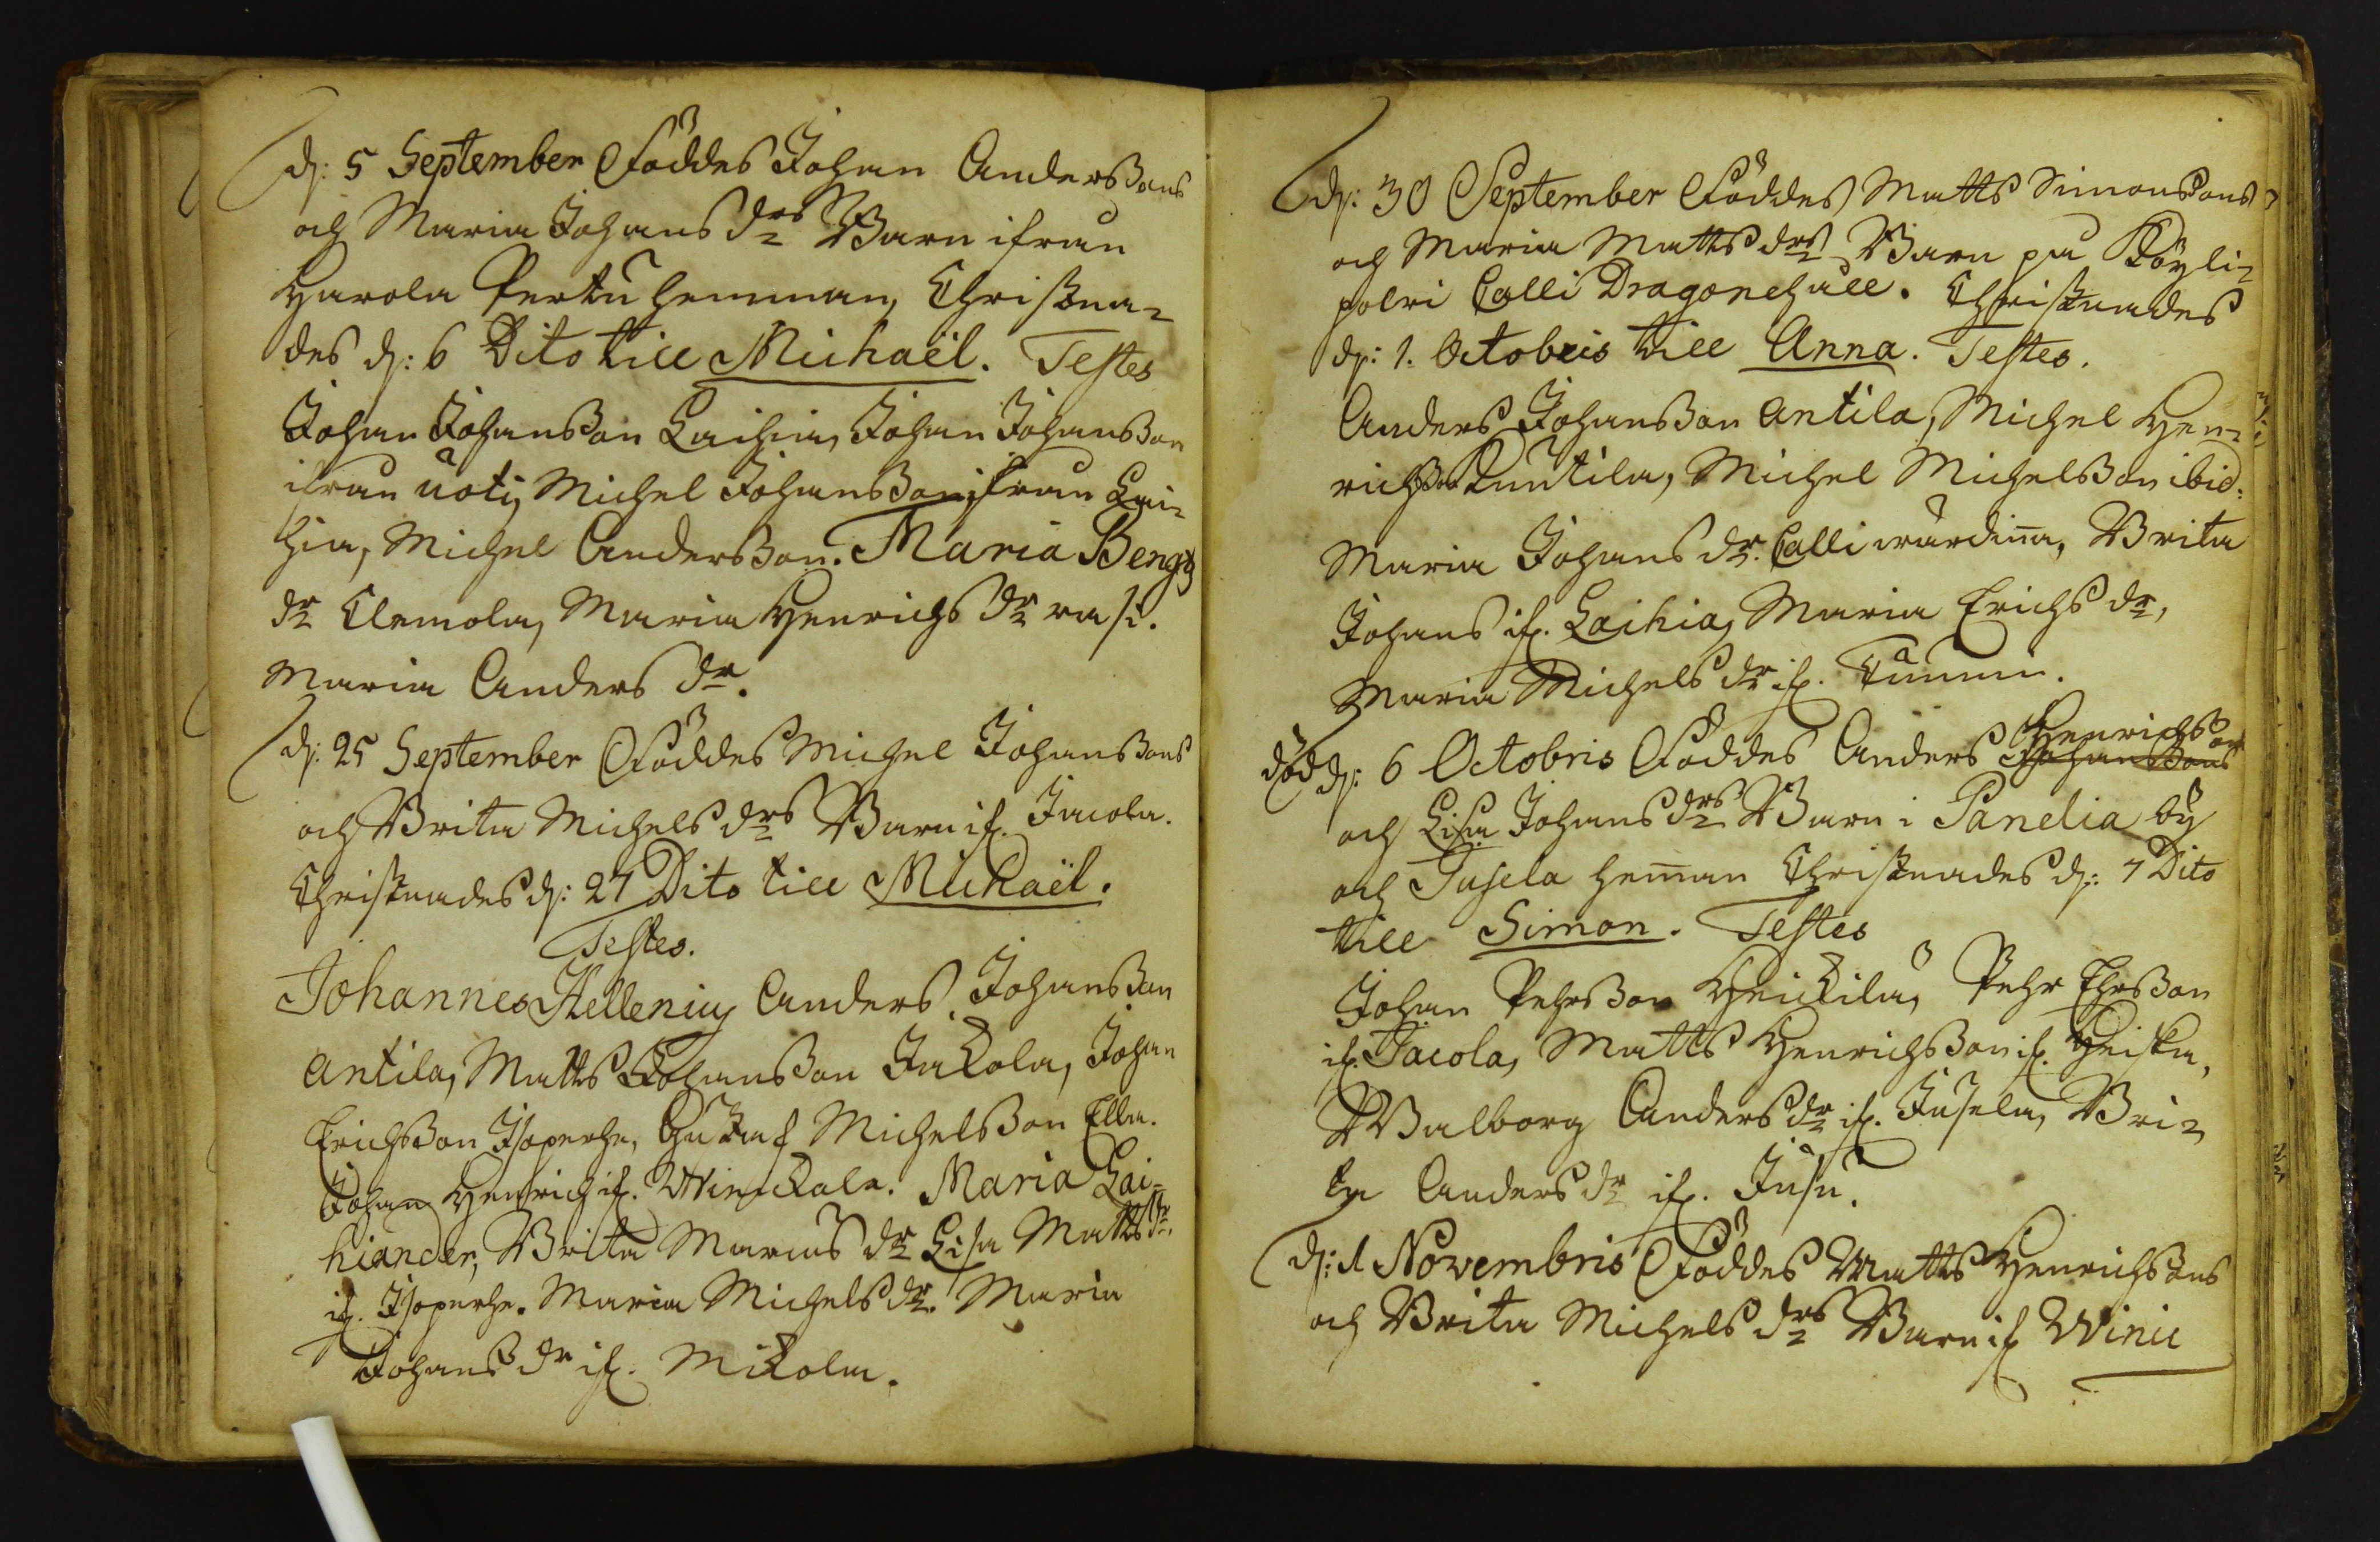 d: 5 September Föddes Johan Anderßons
och Maria Johans drs Barn ifrån
Harola Pertu hemman, Christna=
des d: 6 Dito till Michaël. Testes
Johan Johanßon Laihia, Johan Johanßon
ifrån Uoti, Michel Johanßon ifrån Lai=
hia, Michel Anderßon. Maria Bengts
dr Clemola, Maria Henrichs dr
Maria Anders dr.
d: 25 September Föddes Michel Johanßons
och Brita Michels drs Barn if. Jacola.
Christnades d: 27 Dito till Michaël.
Testes.
Johannes Hellenius Anders Johanßon
Antila, Matts Johanßon Jakola, Johan
Erichßon Isoperhe, Gustaf Michelßon Ella.
Johan Henrich if. Winickala. Maria Lai=
hiander, Brita Marcus dr Lisa Matts dr.
if. Isoperhe. Maria Michels dr. Maria
Johans dr if. Mikola.
d: 30 September Föddes Matts Simonßons
och Maria Matts drs Barn på Köyli=
polvi Calli Dragonehåll. Christnades
d: 1. Octobris till Anna. Testes.
Anders Johanßon Antila, Michel Hen=
richßon Runtila, Michel Michelßon ibid:
Maria Johans dr. Calli wärdinna, Brita
Johans if. Laihia, Maria Erichs dr,
Maria Michels dr if.
död d: 6 Octobris Föddes Anders Henrichßons
Johanßons
och Lisa Johans drs Barn i Panelia by
och Jusela hemman Christnades d: 7 Dito
till Simon. Testes
Johan Pehrßon Heickilä, Pehr Ehrßon
if. Jacola, Matts Henrichßon if. Heiska,
Walborg Anders dr if. Jusela, Bri=
ta Anders dr if. Jusu.
d: 1 Novembris Föddes Matts Henrichßons
och Brita Michels drs Barn if Winic